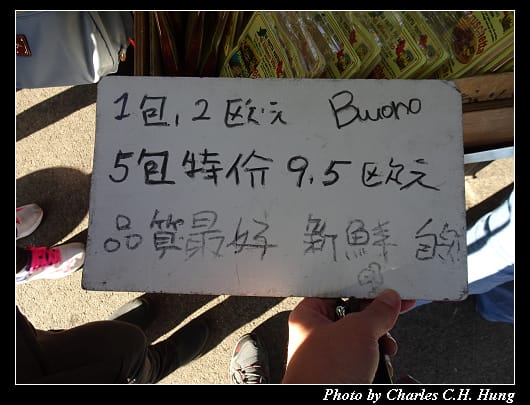 1包,2欧元 Buono
5包特价 9.5欧元
品質最好 新鮮 自
Photo by Charles C.H. Hung